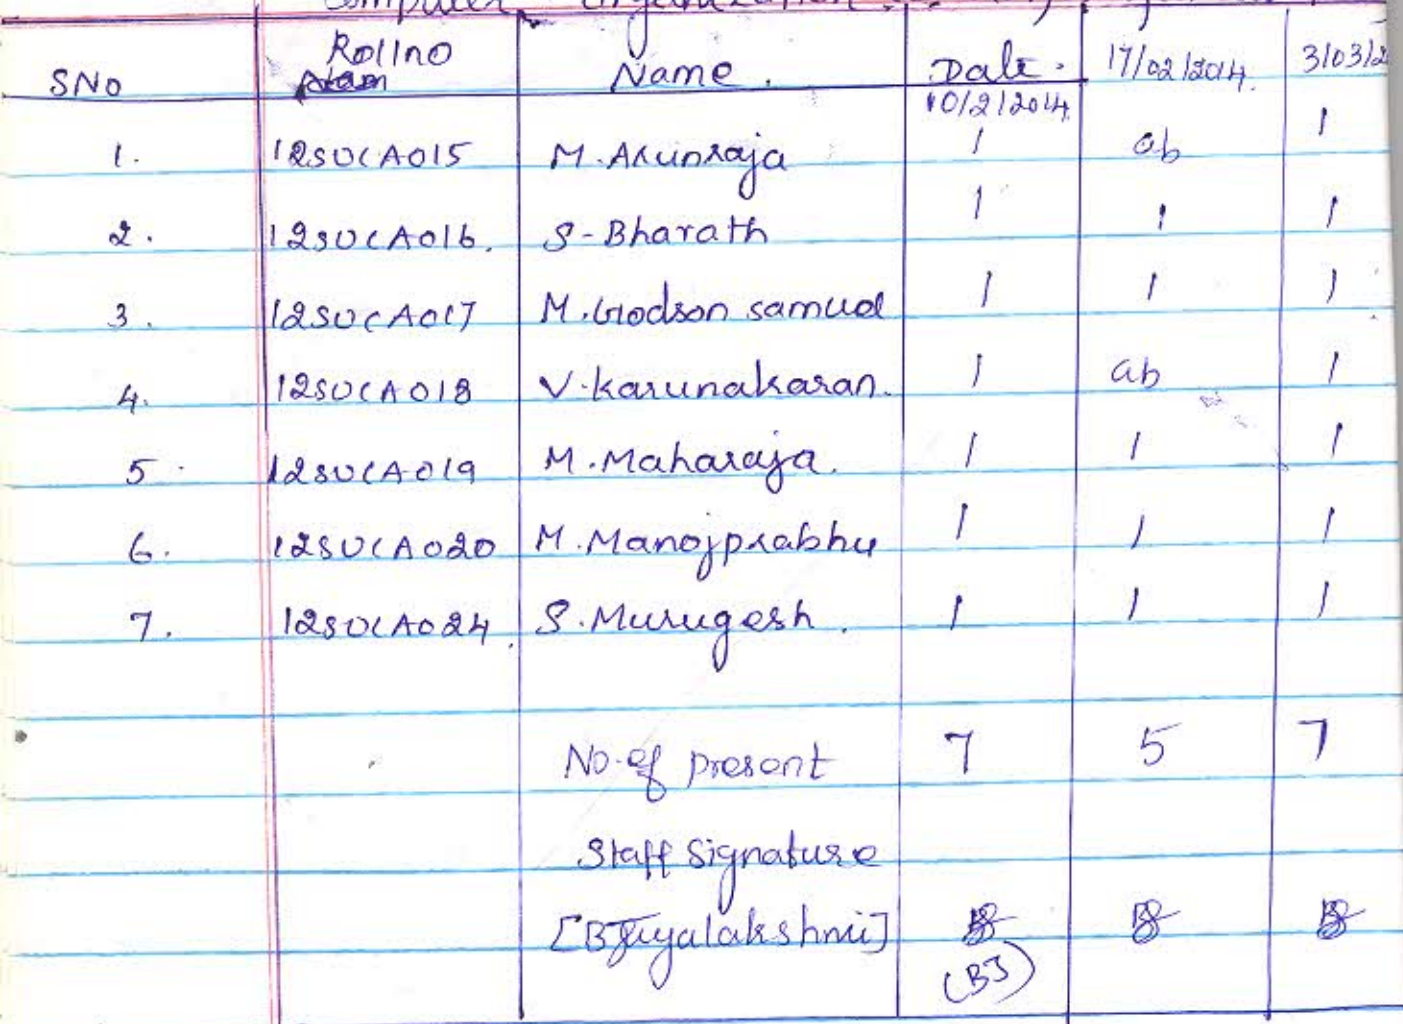 Computer Organization
SNo Rollno Name. Date. 17/02/2014. 3/03/2
10/2/2014
1. 12SUCA015 M.Arunraja 1 ab 1
2. 12SUCA016. S-Bharath 1 1 1
3. 12SUCA017 M.Godson samuel 1 1 1
4. 12SUCA018 V.karunakaran. 1 ab 1
5. 12SUCA019 M.Maharaja. 1 1 1
6. 12SUCA020 M.Manojprabhu 1 1 1
7. 12SUCA024. S.Murugesh. 1 1 1
No.of present 7 5 7
Staff Signature
(BJ)